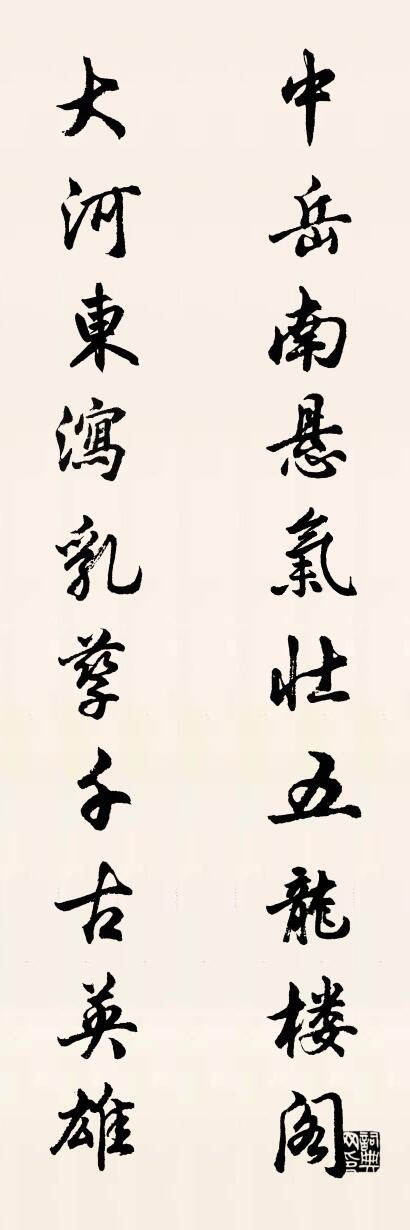 中岳南悬氣壮五龍楼阁
大河東瀉乳孳千古英雄
詞典网印